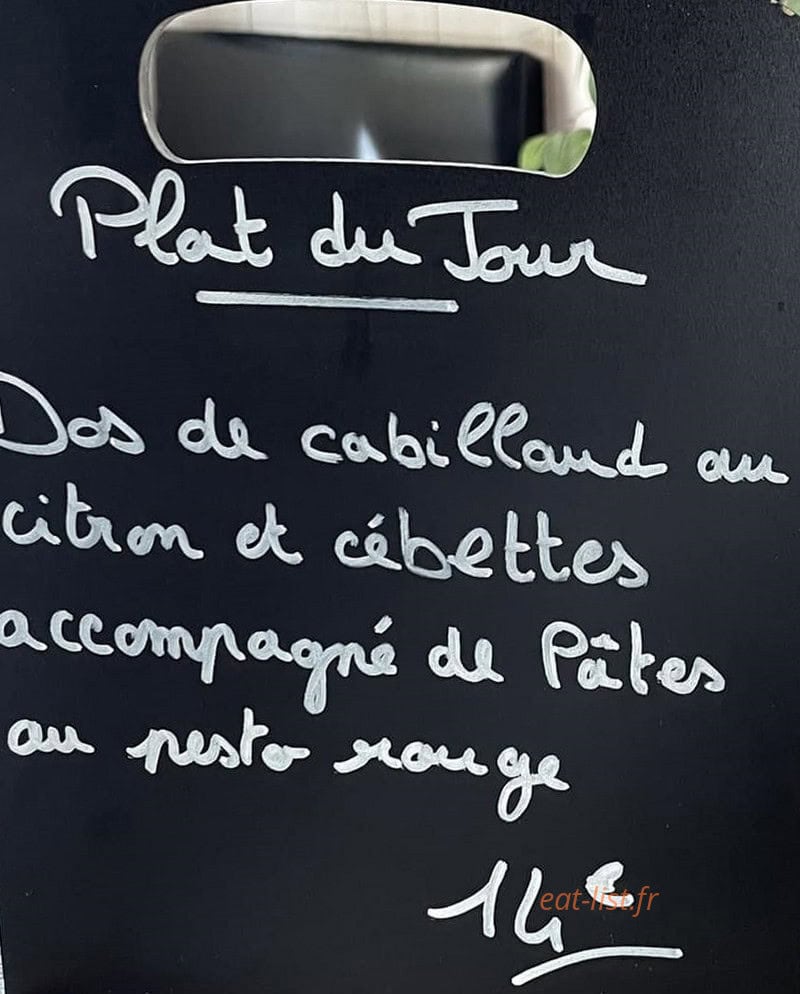 Plat du Jour
Dos de cabillaud au
citron et cébettes
accompagné de Pâtes
au pesto rouge
14€
eat-list.fr